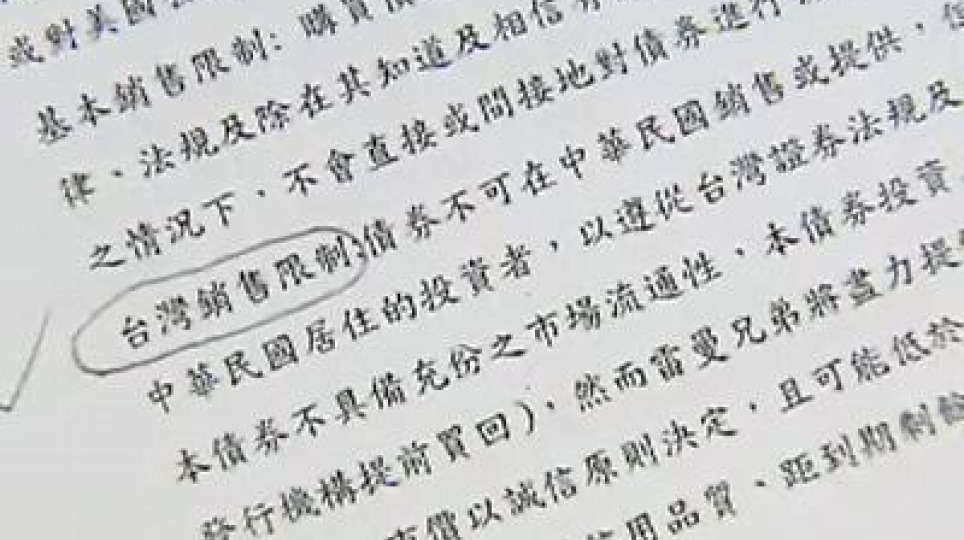 或對美國
基本銷售限制: 購買債
律、法規及除在其知道及相信
之情況下、不會直接或間接地對債券進行
台灣銷售限制:債券不可在中華民國銷售或提供,
中華民國居住的投資者,以遵從台灣證券法規及
本債券不具備充份之市場流通性、本債券投資
發行機構提前買回),然而雷曼兄弟將盡力提
價以誠信原則決定,且可能低於
信用品質、距到期剩餘